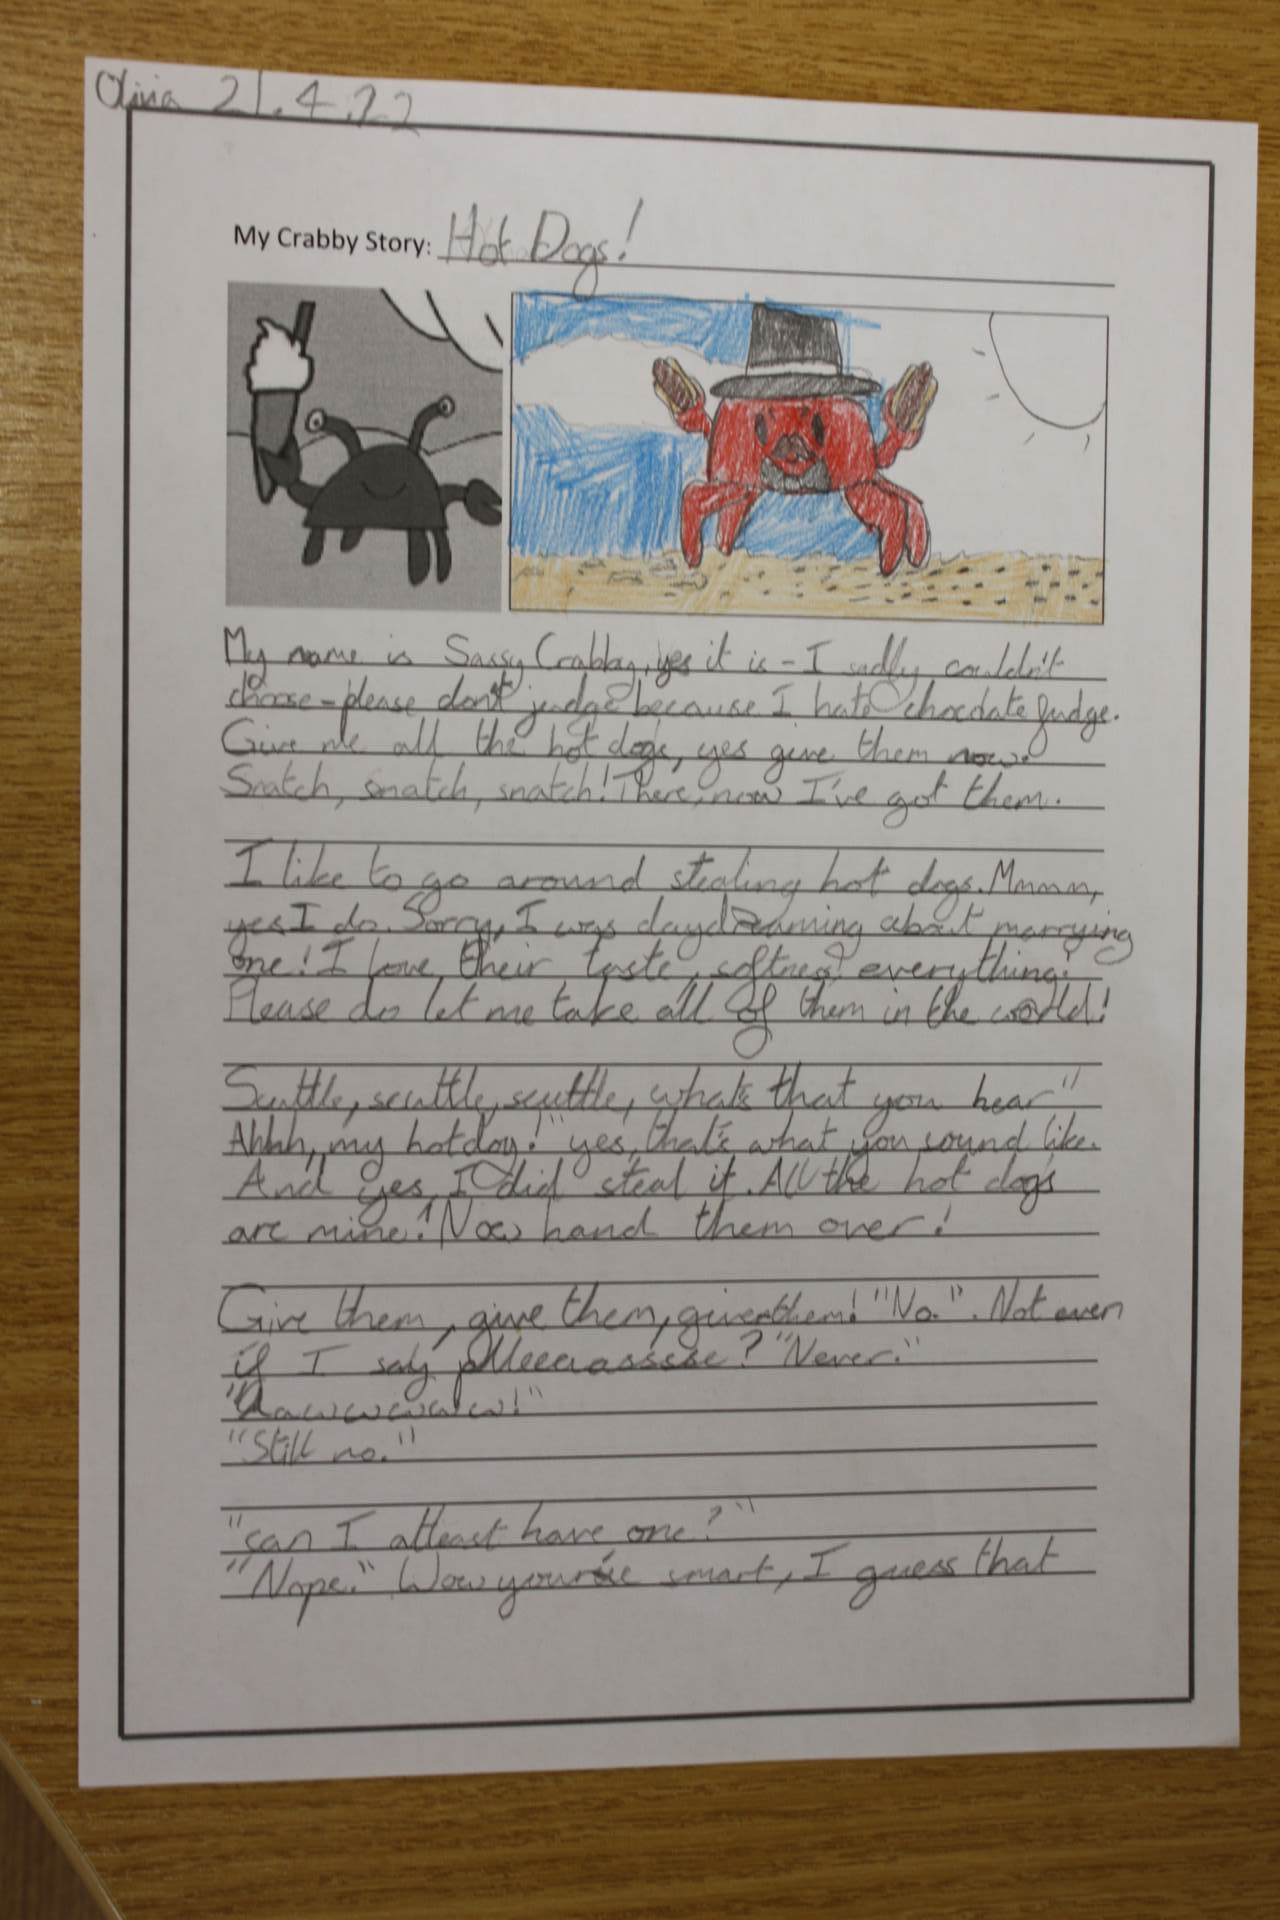 Olivia 21.4.22
My Crabby Story: Hot Dogs!
My name is Sassy Crabby, yes it is - I sadly couldn't
choose - please don't judge because I hate chocolate fudge.
Give me all the hot dogs, yes give them now.
Snatch, snatch, snatch! There, now I've got them.
I like to go around stealing hot dogs. Mmmm,
yes I do. Sorry, I was daydreaming about marrying
one! I love their taste, softness everything!
Please do let me take all of them in the world!
Scuttle, scuttle, scuttle, what's that you hear"
Ahhh, my hotdog!" yes, that's what you sound like.
And yes, I did steal it. All the hot dogs
are mine! Now hand them over!
Give them, give them, give them! "No.". Not even
if I say plleeeaasssse? "Never."
"Aawwwwww!"
"Still no."
"can I atleast have one?"
"Nope." Wow you're smart, I guess that